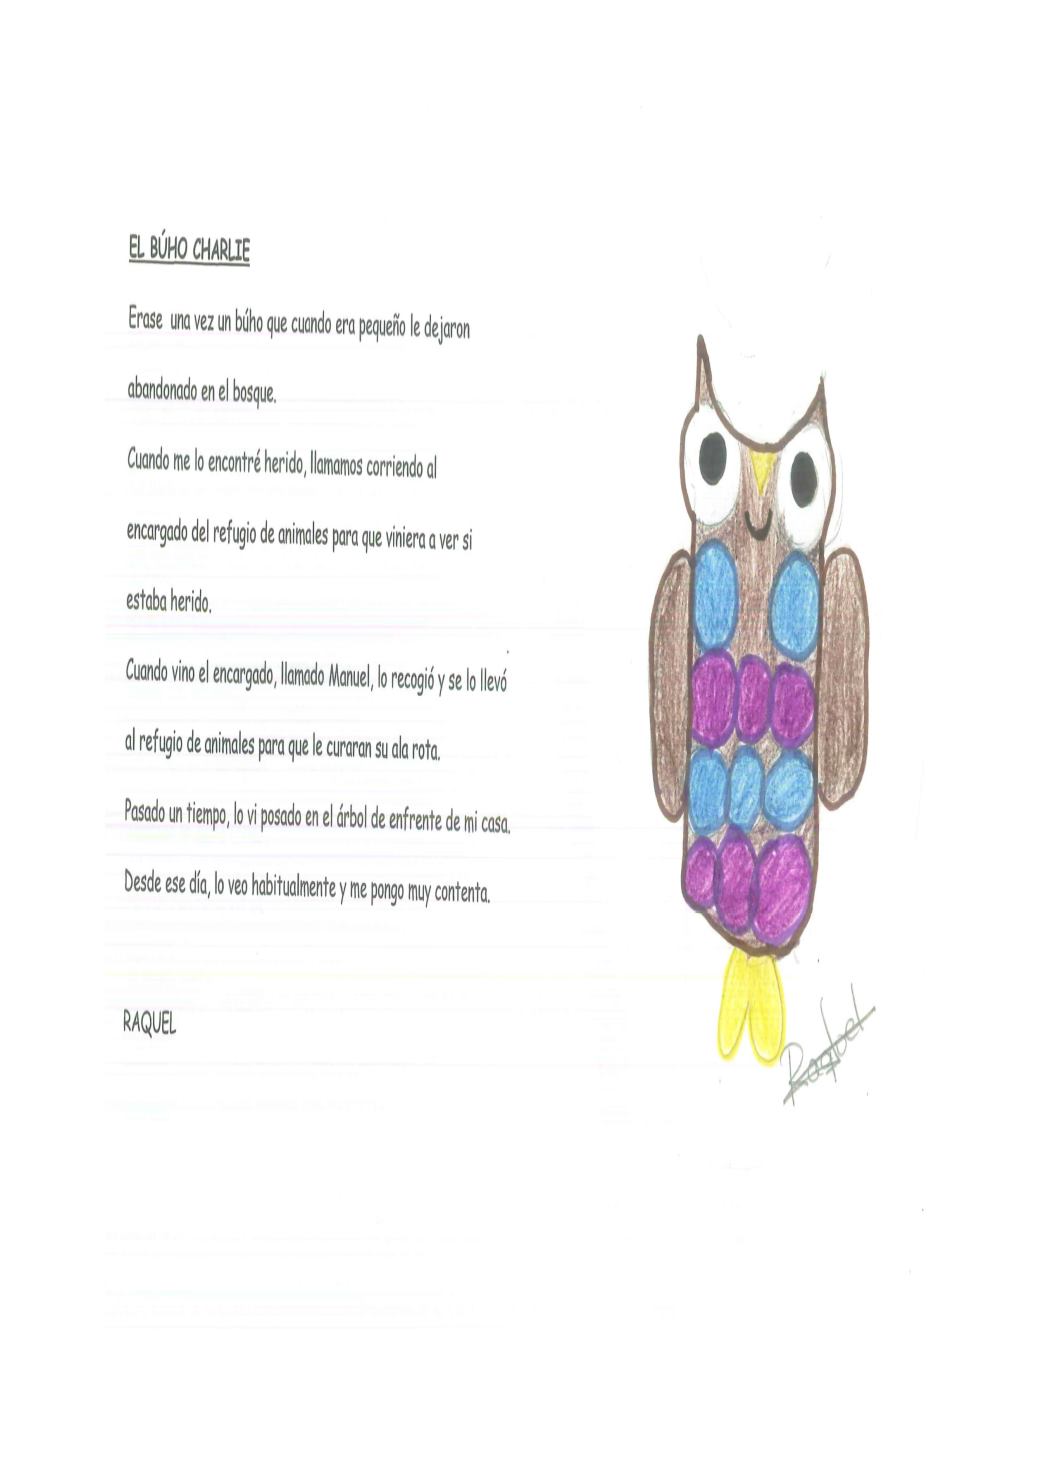 EL BÚHO CHARLIE
Erase una vez un búho que cuando era pequeño le dejaron
abandonado en el bosque.
Cuando me lo encontré herido, llamamos corriendo al
encargado del refugio de animales para que viniera a ver si
estaba herido.
Cuando vino el encargado, llamado Manuel, lo recogió y se lo llevó
al refugio de animales para que le curaran su ala rota.
Pasado un tiempo, lo vi posado en el árbol de enfrente de mi casa.
Desde ese día, lo veo habitualmente y me pongo muy contenta.
RAQUEL
Raquel